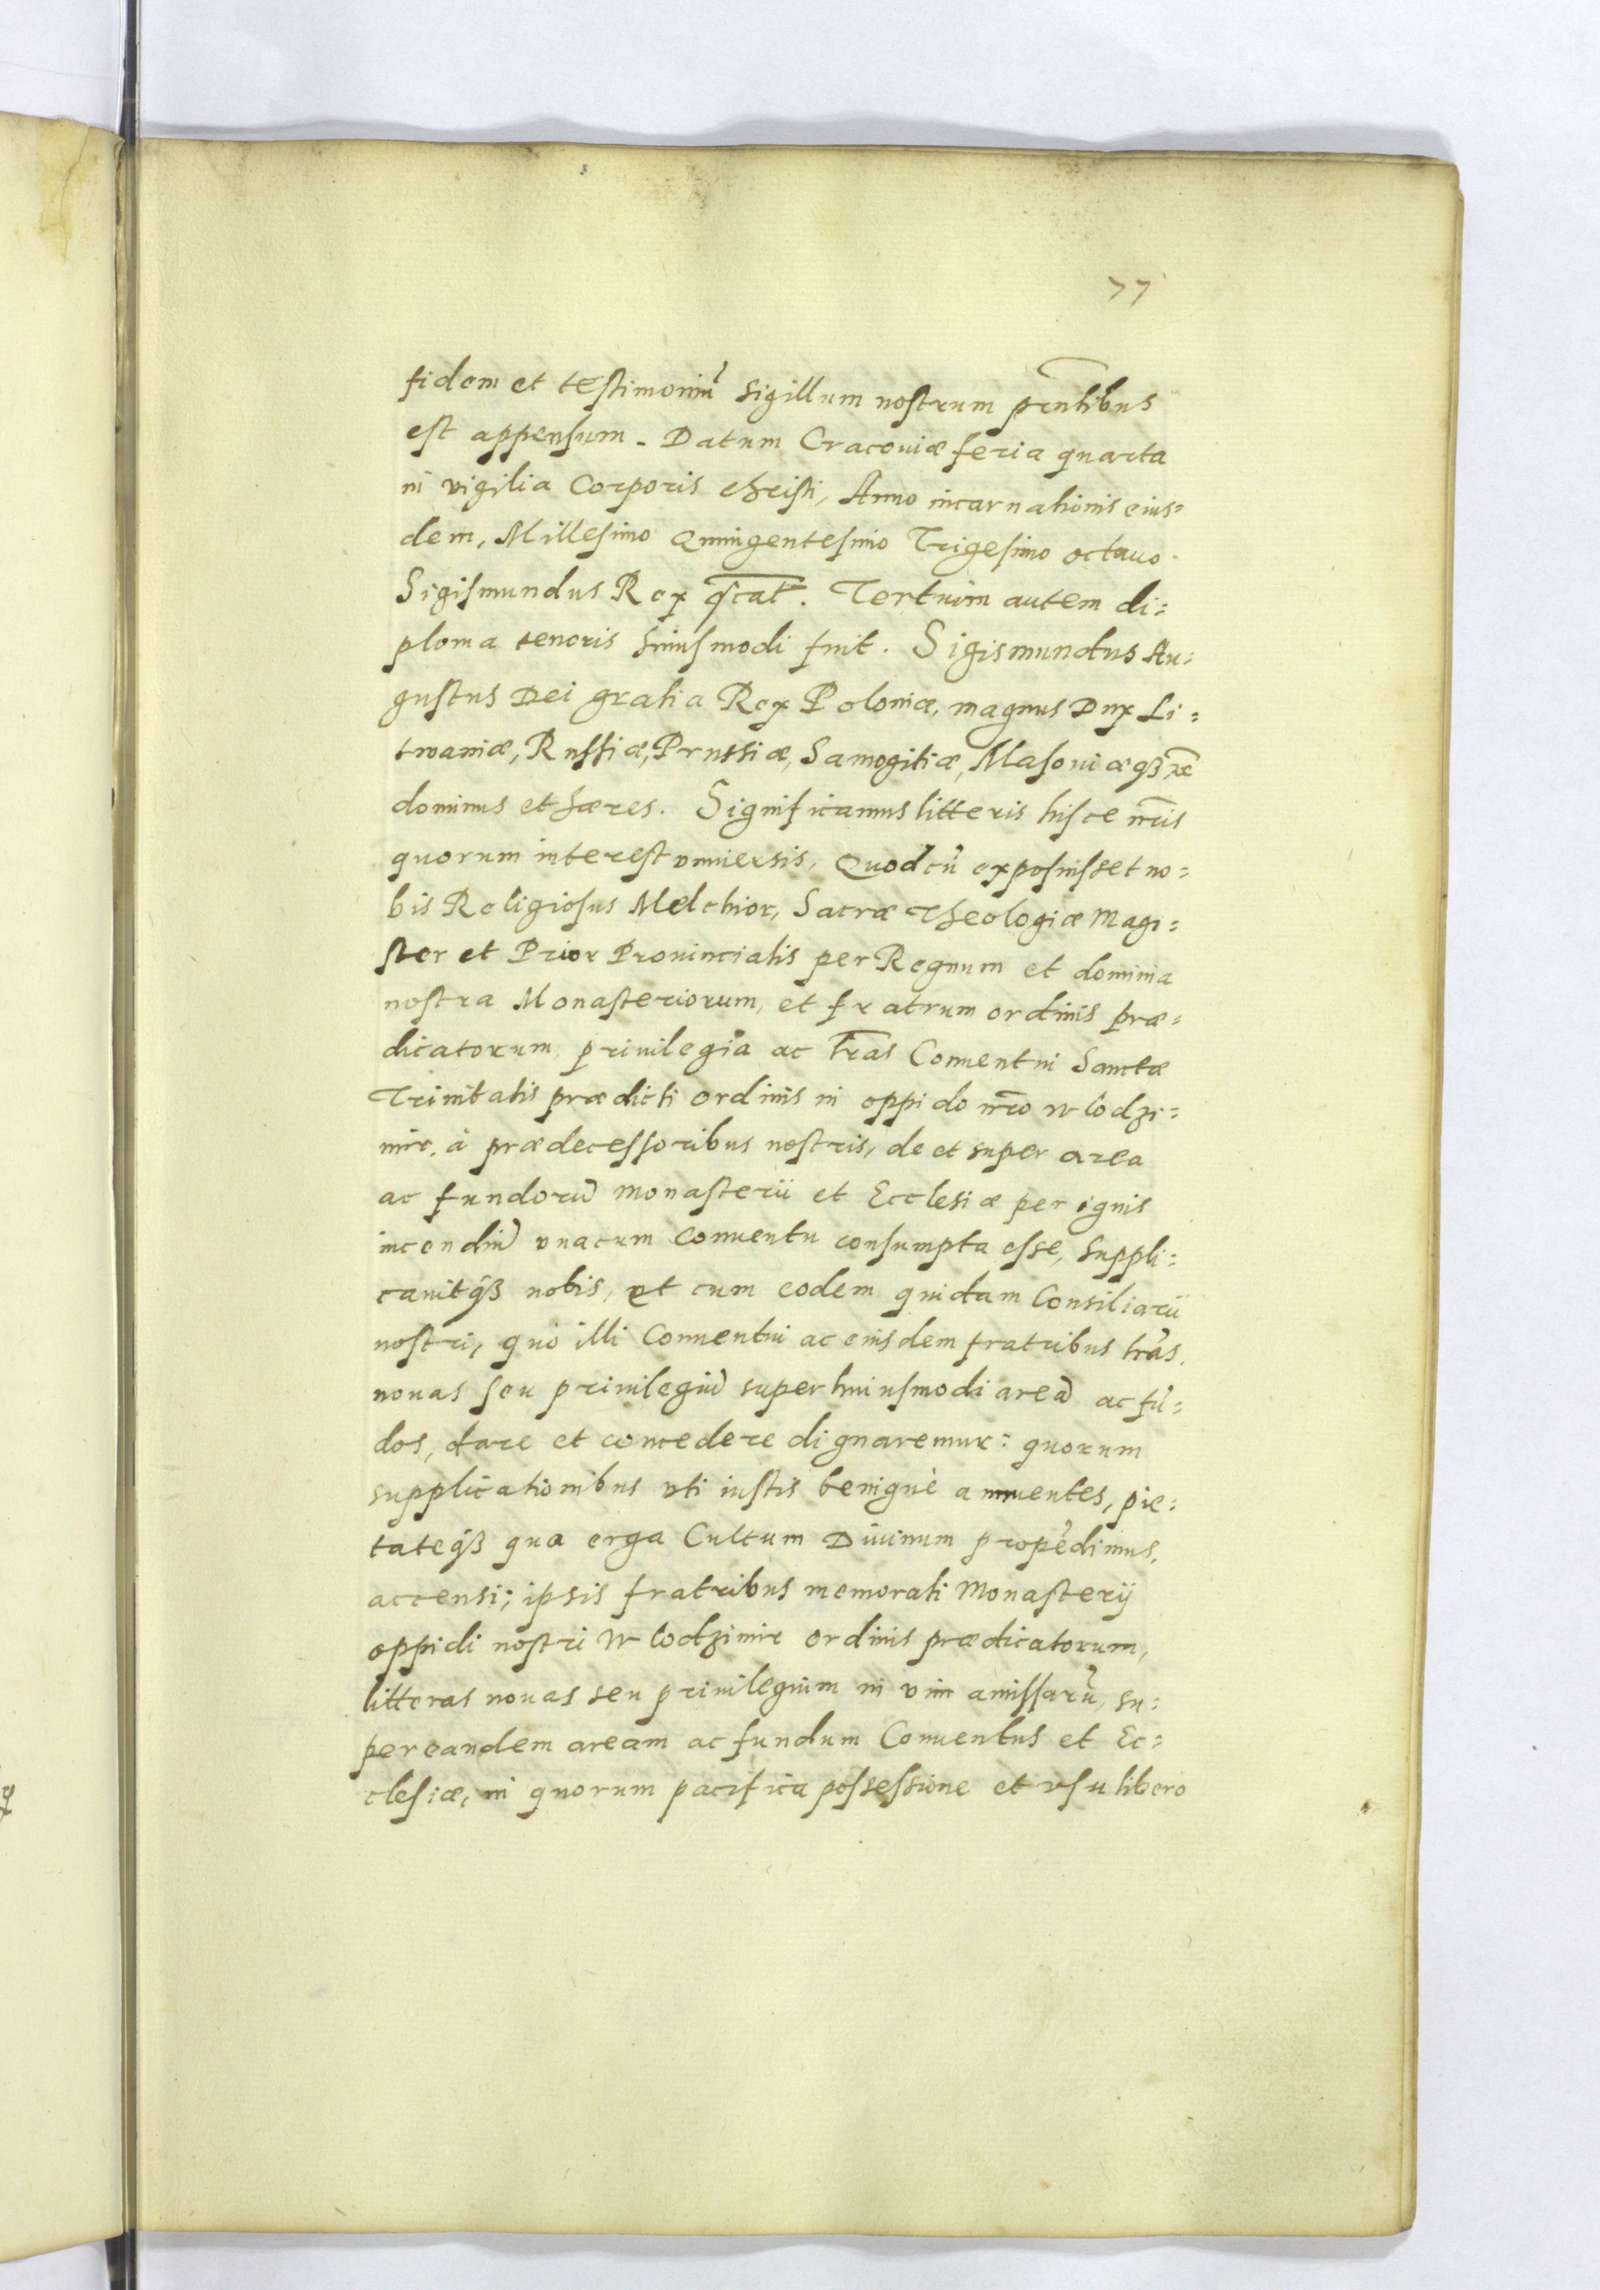 77
fidem et testimoniũ sigillum nostrum pñtibus
est appensum. Datum Cracouiæ feria quarta
in vigilia Corporis christi, Anno incarnationis eius=
dem, Millesimo Quingentesimo Trigesimo octauo.
Sigismundus Rex sc̃at. Tertium autem di=
ploma tenoris huiusmodi fuit. Sigismundus Au=
gustus Dei gratia Rex Poloniæ, magnus Dux Li=
twaniæ, Russiæ, Prussiæ, Samogitiæ, Masouiæqȝ
dominus et hæres. Significamus litteris hisce nr̃is
quorum interest vniuersis, Quod cũ exposuisset no=
bis Religiosus Melchior, Sacræ Theologiæ Magi=
ster et Prior Prouincialis per Regnum et dominia
nostra Monasteriorum, et fratrum ordinis præ=
dicatorum, priuilegia ac lr̃as Conuentui Sanctæ
Trinitatis prædicti ordinis in oppido nr̃o Wlodzi=
mir, à prædecessoribus nostris, de et super area
ac fundorũ monasterii et Ecclesiæ per ignis
incendiũ vnacum conuentu consumpta esse, suppli=
cauitqȝ nobis, et cum eodem quidam Consiliarii
nostri, quò illi Conuentui ac eiusdem fratribus lr̃as
nouas seu priuilegiũ super huiusmodi areã ac fũ=
dos, dare et concedere dignaremur: quorum
supplicationibus vti iustis benignè annuentes, pie=
tateqȝ qua erga Cultum Diuinum propẽdimus,
accensi; ipsis fratribus memorati Monasterij
oppidi nostri Wlodzimir ordinis prædicatorum,
litteras nouas seu priuilegium in vim amissarũ, su=
per eandem aream ac fundum Conuentus et Ec=
clesiæ, in quorum pacifica possessione et vsu libero